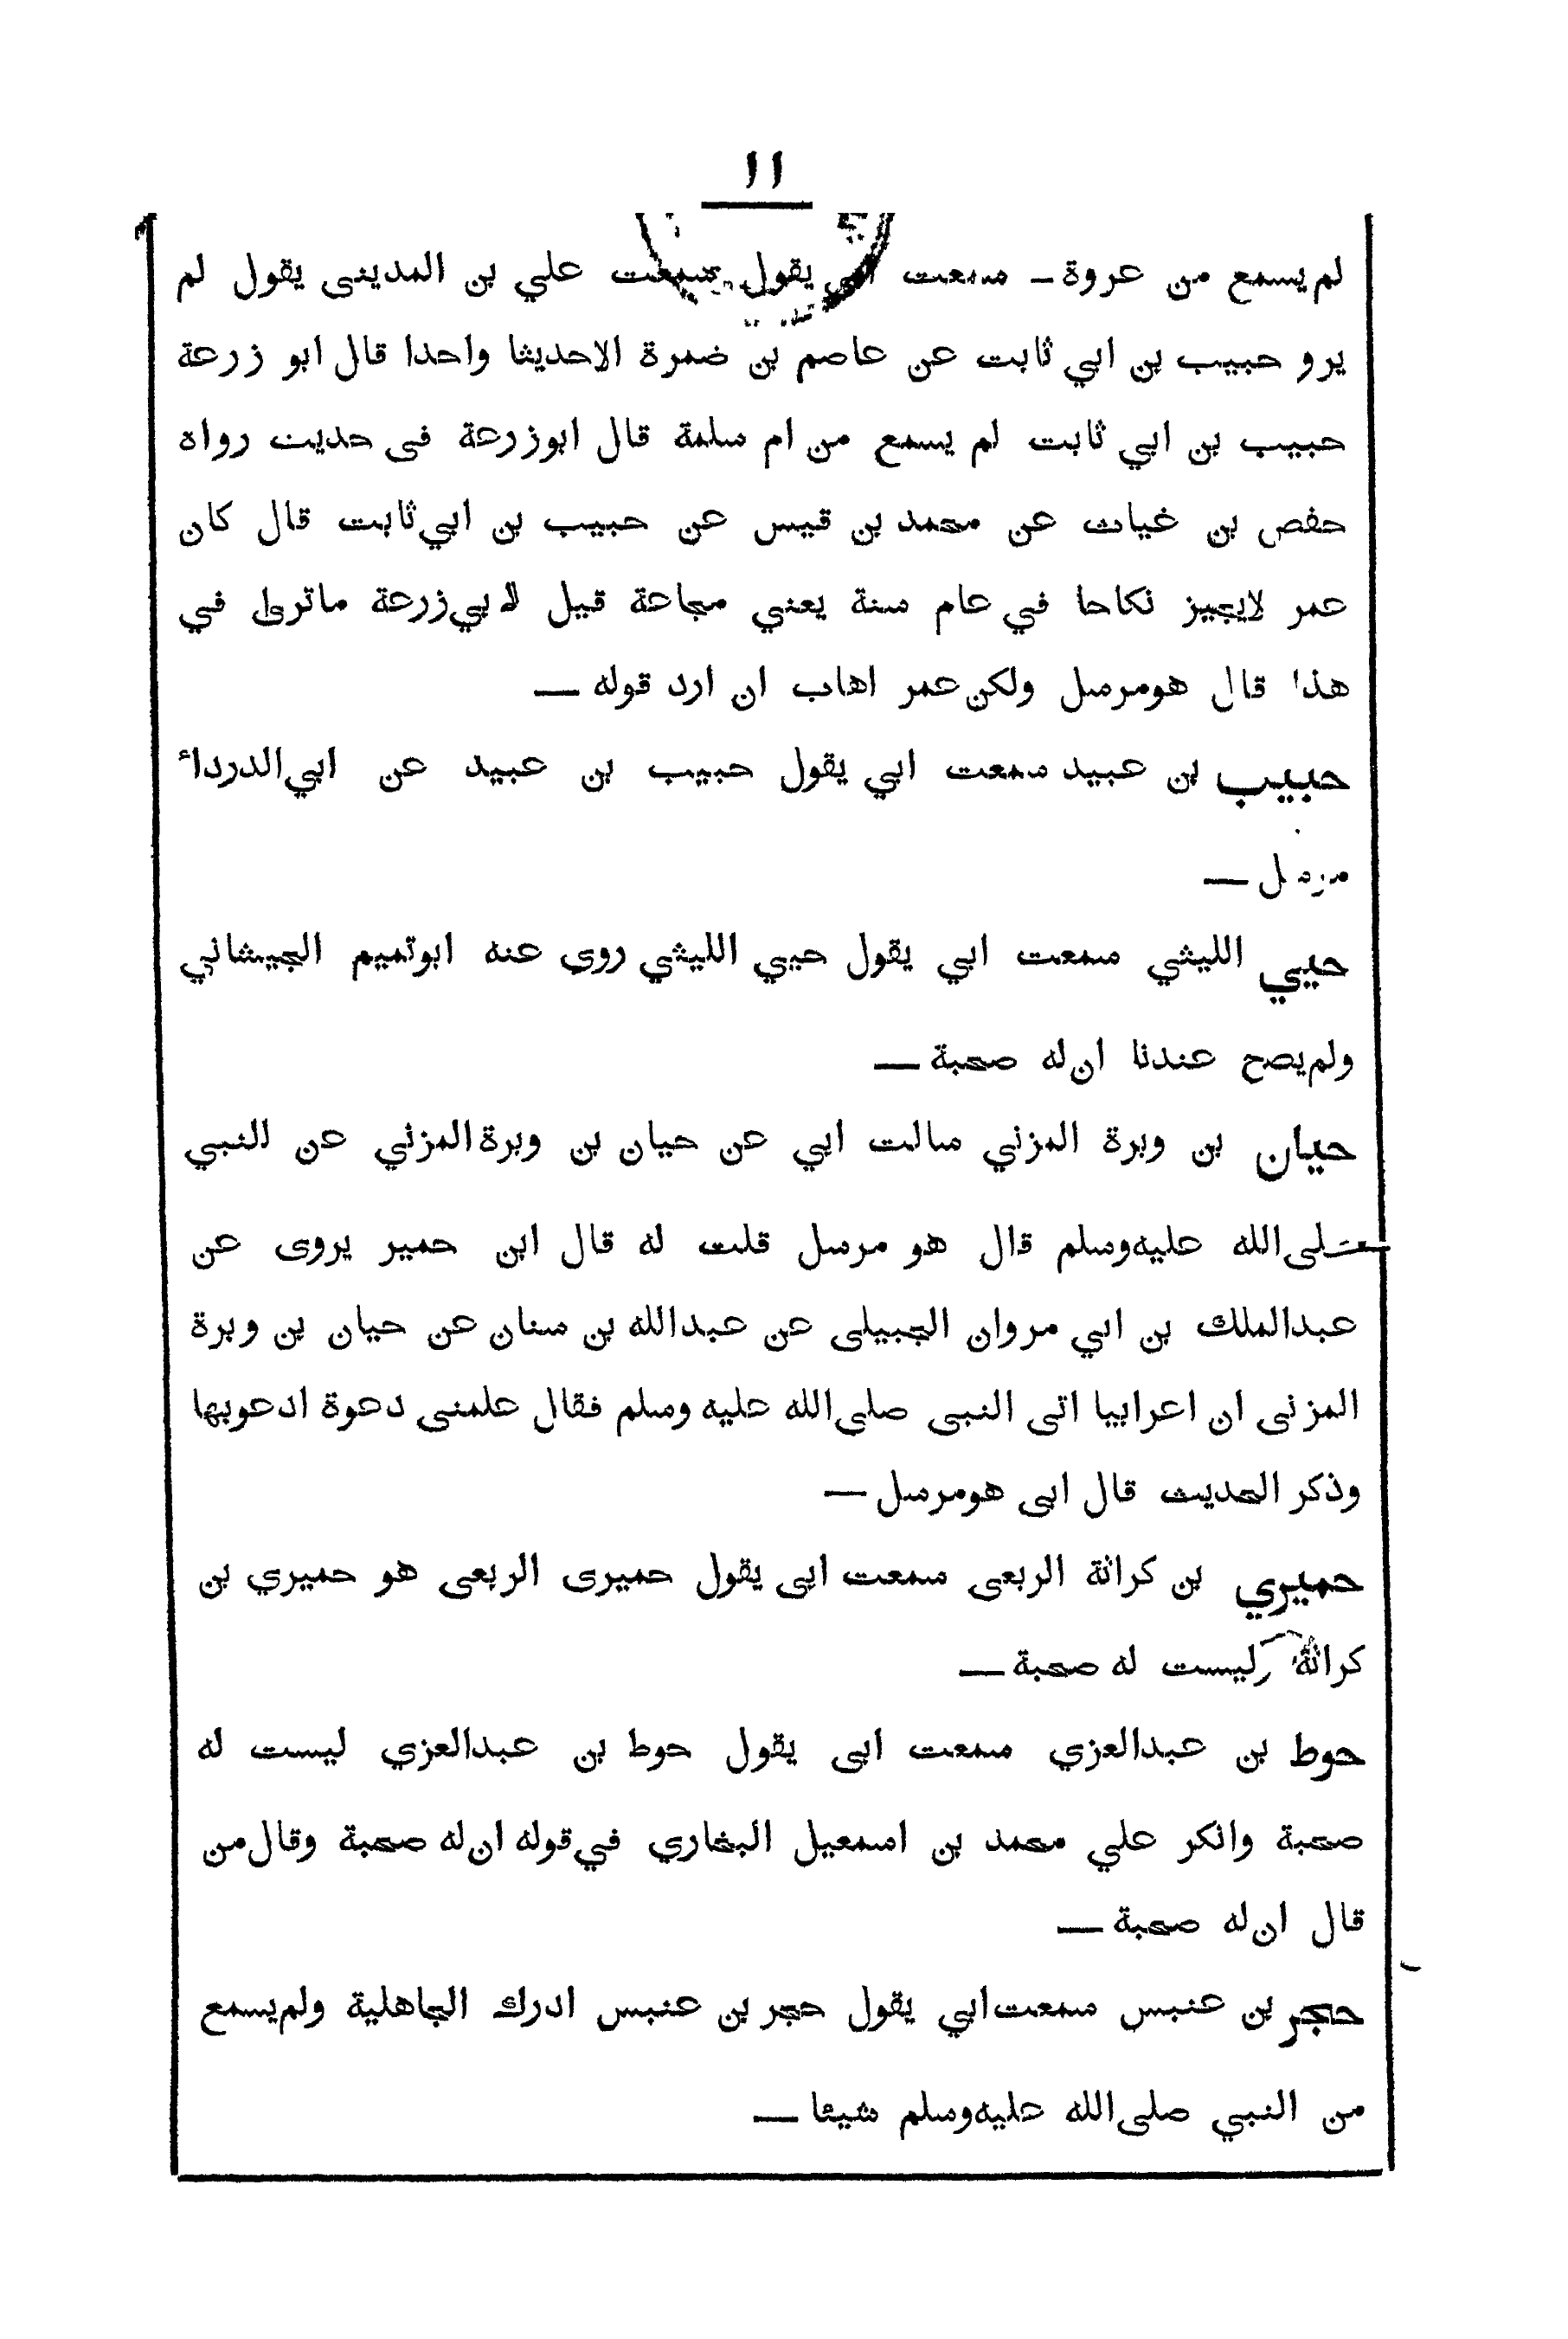 ١١
لم يسمع من عروة ـ سمعت ابي يقول سمعت علي بن المدينى يقول لم
يرو حبيب بن ابي ثابت عن عاصم بن ضمرة الاحديثا واحدا قال ابو زرعة
حبيب بن ابي ثابت لم يسمع من ام سلمة قال ابوزرعة فى حديث رواه
حفص بن غياث عن محمد بن قيس عن حبيب بن ابي ثابت قال كان
عمر لايجيز نكاحا في عام سنة يعني مجاعة قيل لابي زرعة ماترى في
هذا قال هومرسل ولكن عمر اهاب ان ارد قوله —
حبيب بن عبيد سمعت ابي يقول حبيب بن عبيد عن ابي الدرداء
مرسل —
حيي الليثي سمعت ابي يقول حيي الليثي روي عنه ابوتميم الجيشاني
ولم يصح عندنا ان له صحبة —
حيان بن وبرة المزني سالت ابي عن حيان بن وبرة المزني عن النبي
صلى الله عليه وسلم قال هو مرسل قلت له قال ابن حمير يروى عن
عبدالملك بن ابي مروان الجبيلى عن عبدالله بن سنان عن حيان بن وبرة
المزنى ان اعرابيا اتى النبى صلى الله عليه وسلم فقال علمنى دعوة ادعوبها
وذكر الحديث قال ابى هومرسل —
حميري بن كراثة الربعى سمعت ابى يقول حميرى الربعى هو حميري بن
كراثة ليست له صحبة —
حوط بن عبدالعزي سمعت ابى يقول حوط بن عبدالعزي ليست له
صحبة وانكر علي محمد بن اسمعيل البخاري في قوله ان له صحبة وقال من
قال ان له صحبة —
حجر بن عنبس سمعت ابي يقول حجر بن عنبس ادرك الجاهلية ولم يسمع
من النبي صلى الله عليه وسلم شيئا —